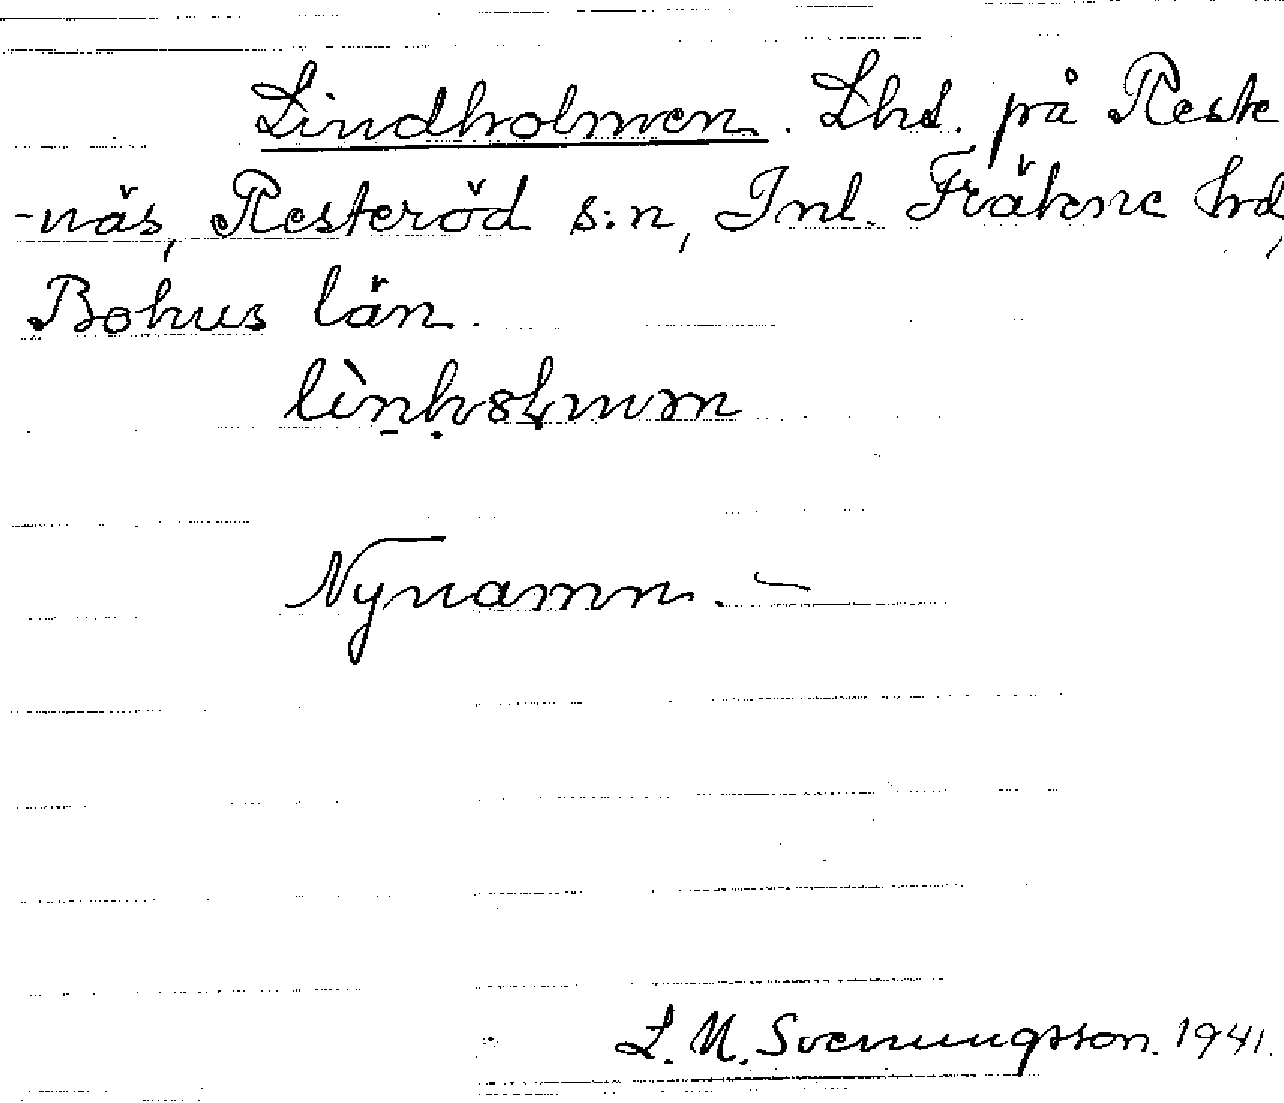 Lindholmen. Lhd. på Reste
-näs, Resteröd s:n, Inl. Fräkne hd,
Bohus län.
Nynamn. –
L. M. Svenungsson. 1941.